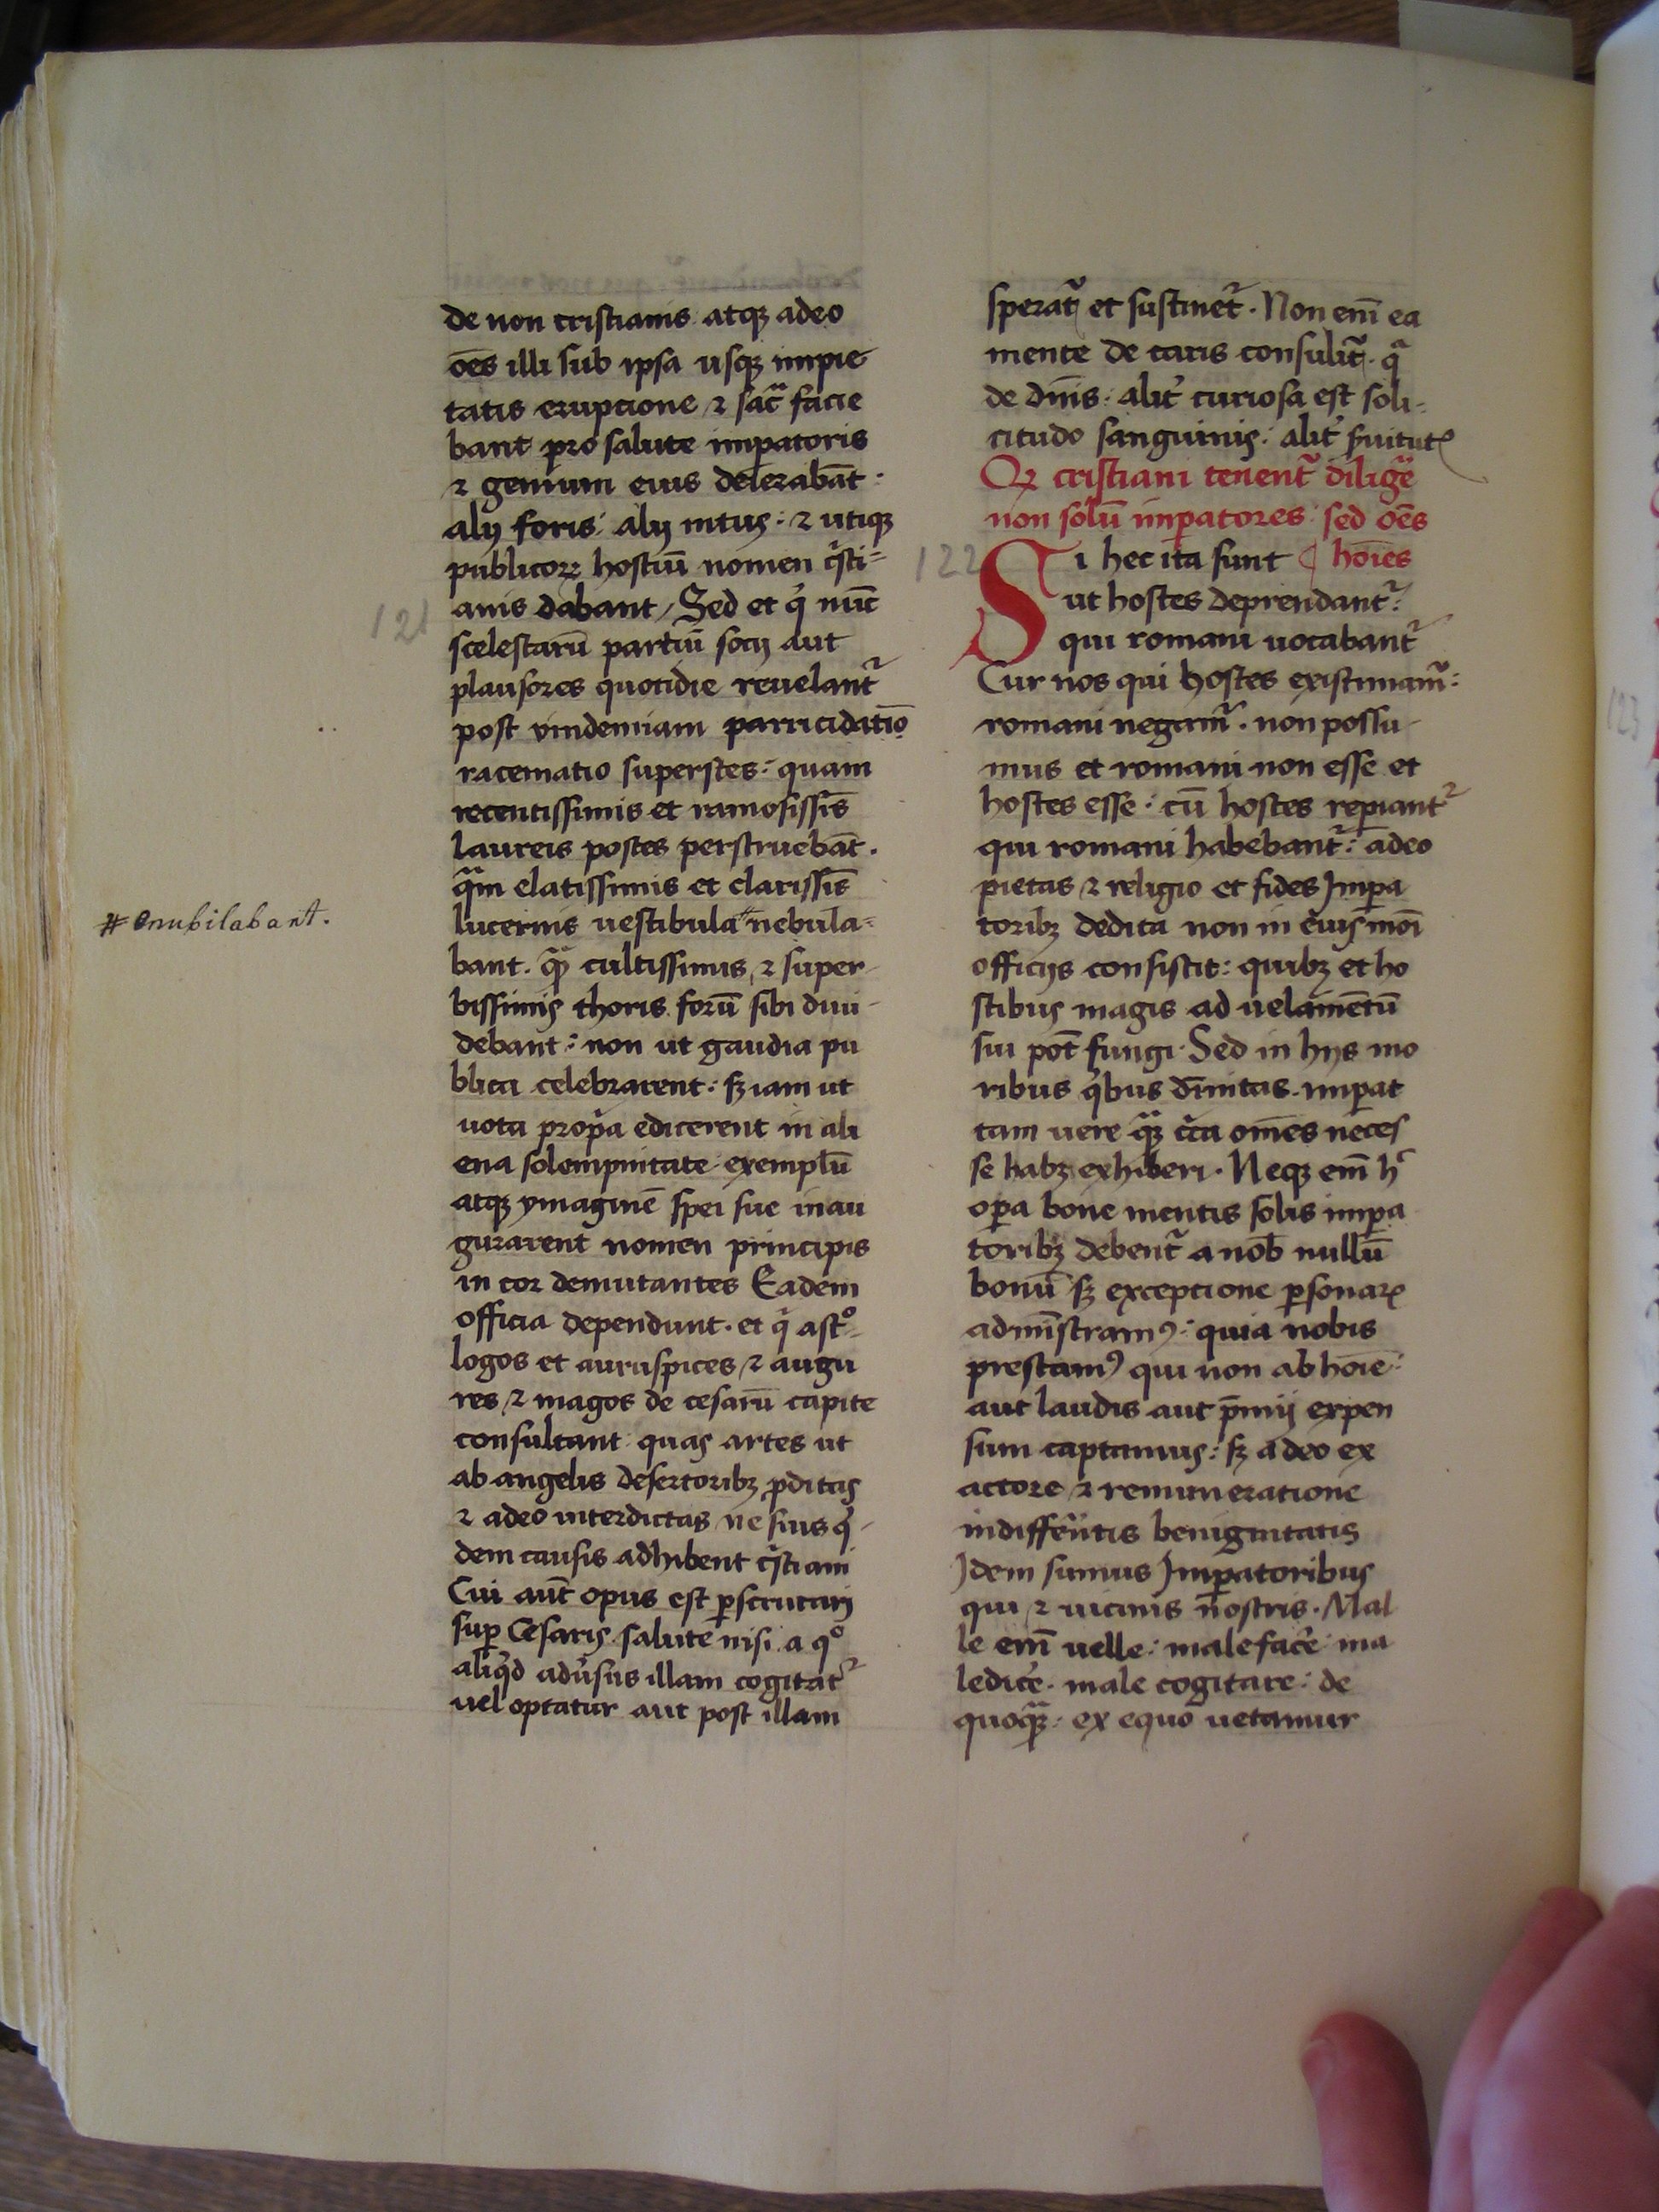 de non cristianis atqꝫ adeo
o̅e̅s illi sub ipsa usqꝫ impie
tatis erupcione ⁊ sac̃ facie
bant pro salute impatoris
⁊ genium eius deierabāt :
alij foris : alij intus : ⁊ utiqꝫ
publicoꝝ hostiū nomen xp̄ti-
anis dabant / Sed et qͥ nūc
scelestarū partiū socij aut
plausores quotidie reuelantͬ
post vindemiam parricidatiō
racematio superstes : quam
recentissimis et ramosissīs
laureis postes perstruebāt .
qͣm elatissimis et clarissīs
lucernis uestibula # nebula-
bant . qͣꝫ cultissimis ⁊ super-
bissimis thoris forū sibi diui-
debant : non ut gaudia pu
blica celebrarent : sꝫ iam ut
uota propͥa edicerent in ali
ena solempnitate exemplū
atqꝫ ymaginē spei sue inau
gurarent nomen principis
in cor demutantes Eadem
officia dependunt . et qͥ astͦ-
logos et auruspices ⁊ augu
res ⁊ magos de cesarū capite
consultant quas artes ut
ab angelis desertoribꝫ ꝓditas
⁊ adeo interdictas ne suis qͥ-
dem causis adhibent xp̄tiani
Cui aut̄ opus est ꝑscrutari
suꝑ Cesaris salute nisi a qͦ
aliqͥd adūsus illam cogitatͬ
uel optatur aut post illam
# enubilabant.
121
speratͬ et sustinetͬ . Non em̄ ea
mente de caris consulitͬ . qͣ
de dn̄is : alit͛ curiosa est soli-
citudo sanguinis : alit͛ ẜuitutꝭ
Qꝛ cristiani tenentͬ dilige͛
non solū imꝑatores : sed oēs
122
Si hec ita sunt ¶ hoīes
ut hostes deprendantͬ :
qui romani uocabantͬ
Cur nos qui hostes existimamͬ :
romani negamͬ . non possu-
mus et romani non esse et
hostes esse : cū hostes reꝑiantͬ
qui romani habebantͬ : adeo
pietas ⁊ religio et fides Imꝑa
toribꝫ dedita non in eiusmōi
officijs consistit : quibꝫ et ho
stibus magis ad uelamētū
sui pōt fungi . Sed in hijs mo
ribus qͥbus dīnitas imꝑat
tam uere qͣꝫ cͥca om̄es neces
se habꝫ exhiberi . Neqꝫ em̄ hͨ
oꝑa bone mentis solis imꝑa
toribꝫ debentͬ a nob̄ nullū
bonū sꝫ exceptione ꝑsonarꝭ
adminīstramꝰ : quia nobis
prestamꝰ qui non ab hoīe :
aut laudis aut p̄mij expen
sum captamus : sꝫ a deo ex
actore ⁊ remuneratione
indiffe͛ntis benignitatis
Idem sumus Imꝑatoribus
qui ⁊ uicinis nostris . Mal
le em̄ uelle : male face͛ : ma
ledice͛ . male cogitare : de
quoqͣꝫ : ex equo uetamur
123